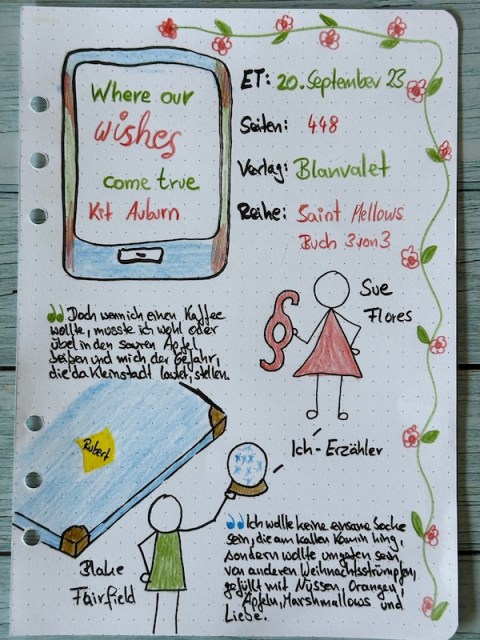 Where our
wishes
come true
Kit Auburn
ET: 20. September 23
Seiten: 448
Verlag: Blanvalet
Reihe: Saint Mellows
Buch 3 von 3
Sue
Flores
Doch wenn ich einen Kaffee
wollte, musste ich wohl oder
übel in den sauren Apfel
beißen und mich der Gefahr,
die da Kleinstadt lautet, stellen.
§
Rubert
Ich-Erzähler
Blake
Fairfield
Ich wollte keine einsame Socke
sein, die am kalten Kamin hing,
sondern wollte umgeben sein
von anderen Weihnachtsstrümpfen,
gefüllt mit Nüssen, Orangen,
Äpfeln, Marshmallows und
Liebe.